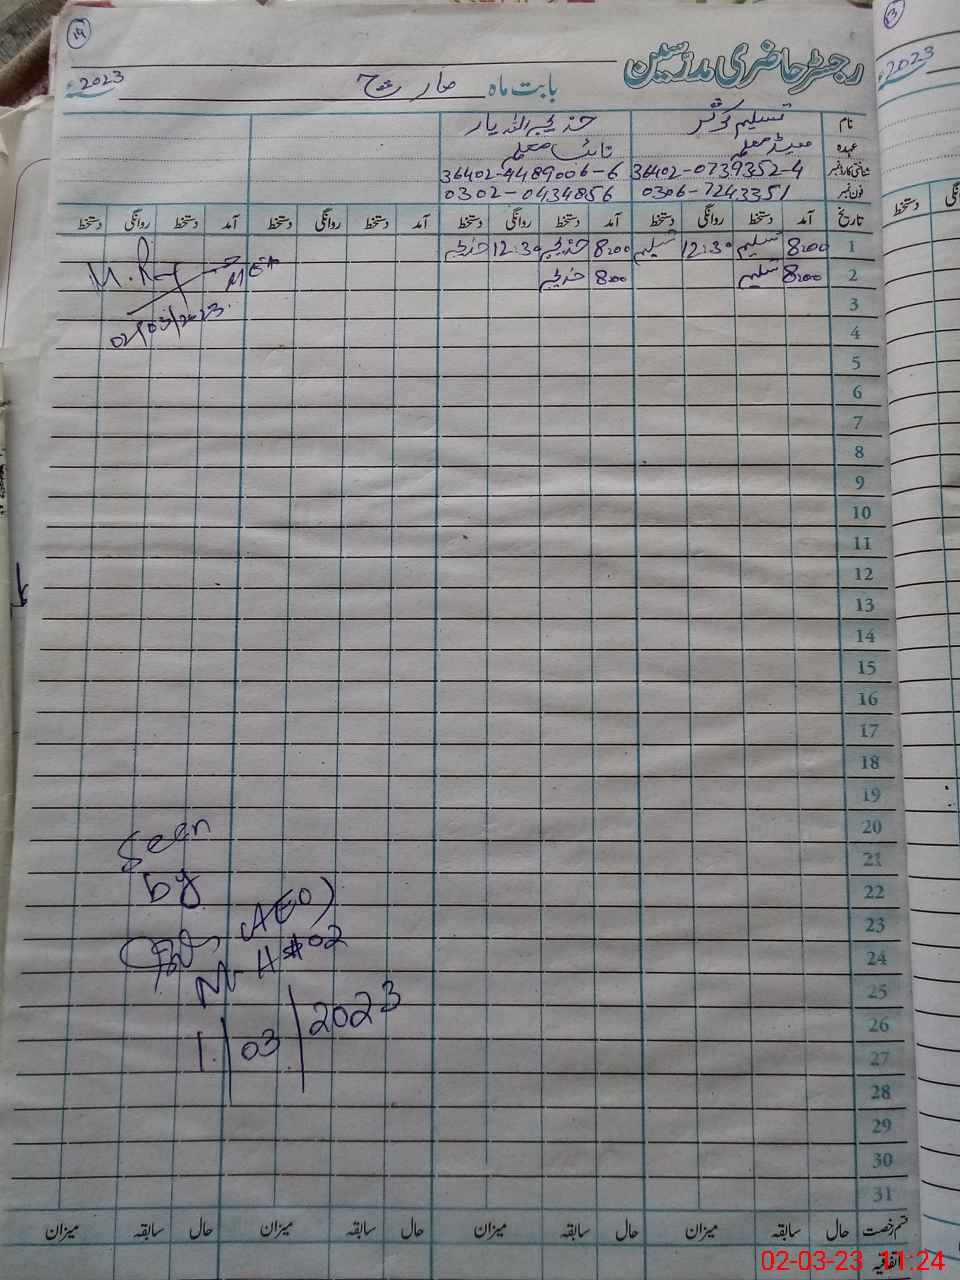 14
رجسٹر حاضری مدرسین
2023ء بابت ماہ مارچ
نام تسلیم کوثر خدیجہ اللہ یار
عہدہ ہیڈ معلمہ نائب معلمہ
شناختی کارڈ نمبر 36402-0739352-4 36402-4489006-6
فون نمبر 0306-7243351 0302-0434856
تاریخ آمد دستخط روانگی دستخط آمد دستخط روانگی دستخط آمد دستخط روانگی دستخط آمد دستخط روانگی دستخط
1 8:00 تسلیم 12:30 تسلیم 8:00 خدیجہ 12:30 خدیجہ
2 8:00 تسلیم 8:00 خدیجہ
MEA
02/03/2023.
3
4
5
6
7
8
9
10
11
12
13
14
15
16
17
18
19
20
21
22
23
24
25
26
27
28
29
30
31
Seen
by
(AEO)
M-H#02
1/03/2023
قسم رخصت حال سابقہ میزان حال سابقہ میزان حال سابقہ میزان حال سابقہ میزان
اتفاقیہ
13
2023ء
دستخط
02-03-23 11:24